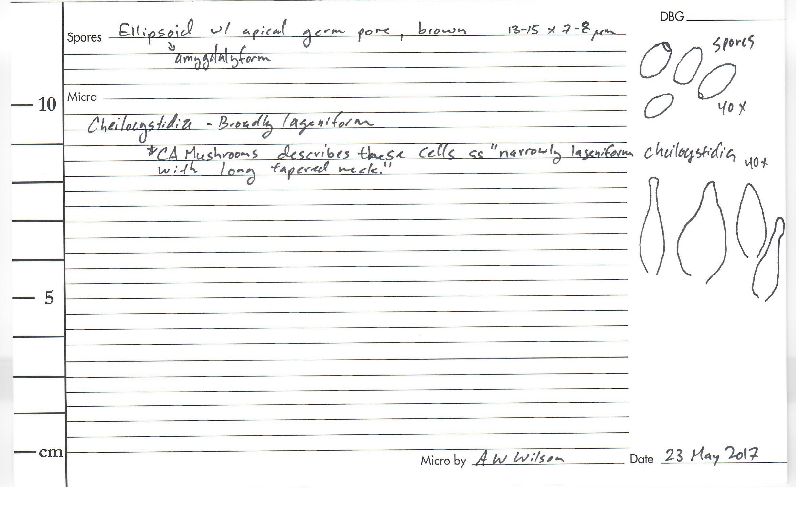 DBG
Spores Ellipsoid w/ apical germ pore, brown 13-15 x 7-8 µm
amygdalyform
spores
40x
10
Micro
Cheilocystidia - Broadly lageniform
*CA Mushrooms describes these cells as "narrowly lageniform
with long tapered neck."
cheilocystidia
40x
5
cm
Micro by AW Wilson Date 23 May 2017